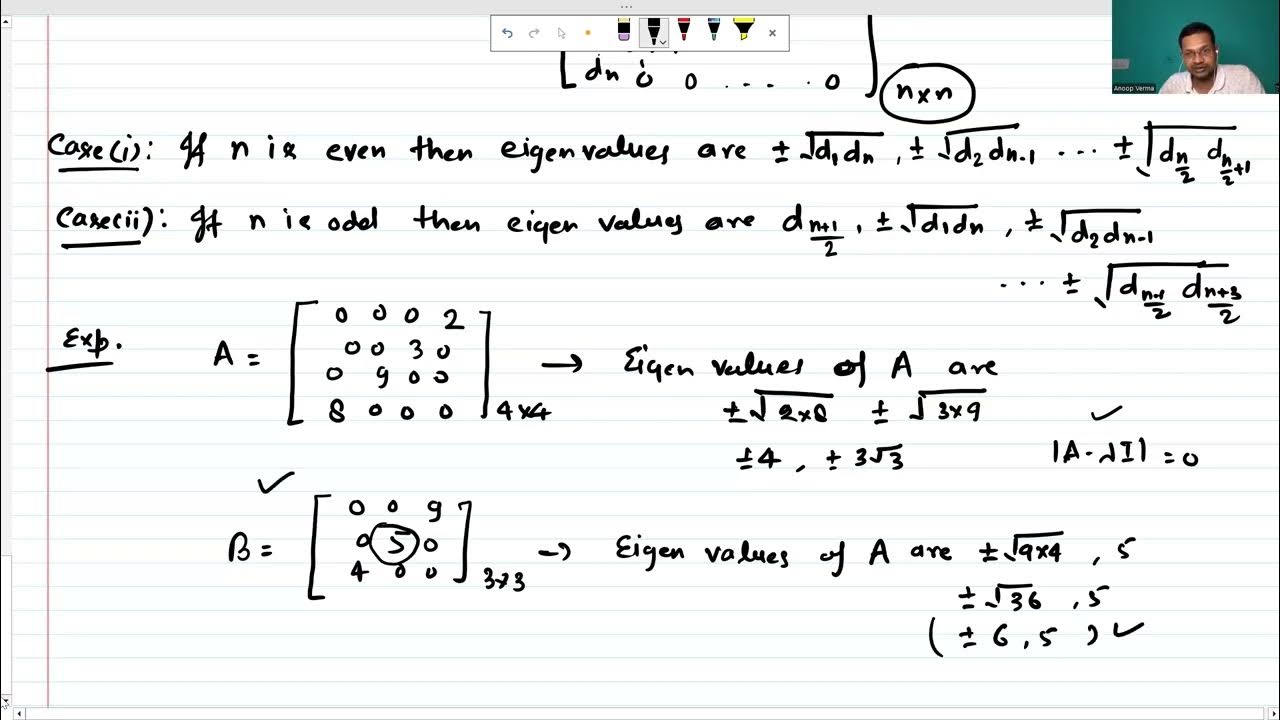 dn 0 0 .... 0
n×n
Anoop Verma
Case(i): If n is even then eigen values are ± √d₁dn , ± √d₂dn-1 ... ± √d_{n/2} d_{n/2+1}
Case(ii): If n is odd then eigen values are d_{n+1/2} , ± √d₁dn , ± √d₂dn-1
... ± √d_{n-1/2} d_{n+3/2}
Exp.
A = [ 0 0 0 2
0 0 3 0
0 9 0 0
8 0 0 0 ] 4×4 → Eigen values of A are
± √2×8 ± √3×9 ✓
±4 , ± 3√3 |A-λI| = 0
✓
B = [ 0 0 9
0 5 0
4 0 0 ] 3×3 → Eigen values of A are ± √9×4 , 5
± √36 , 5
( ± 6 , 5 ) ✓